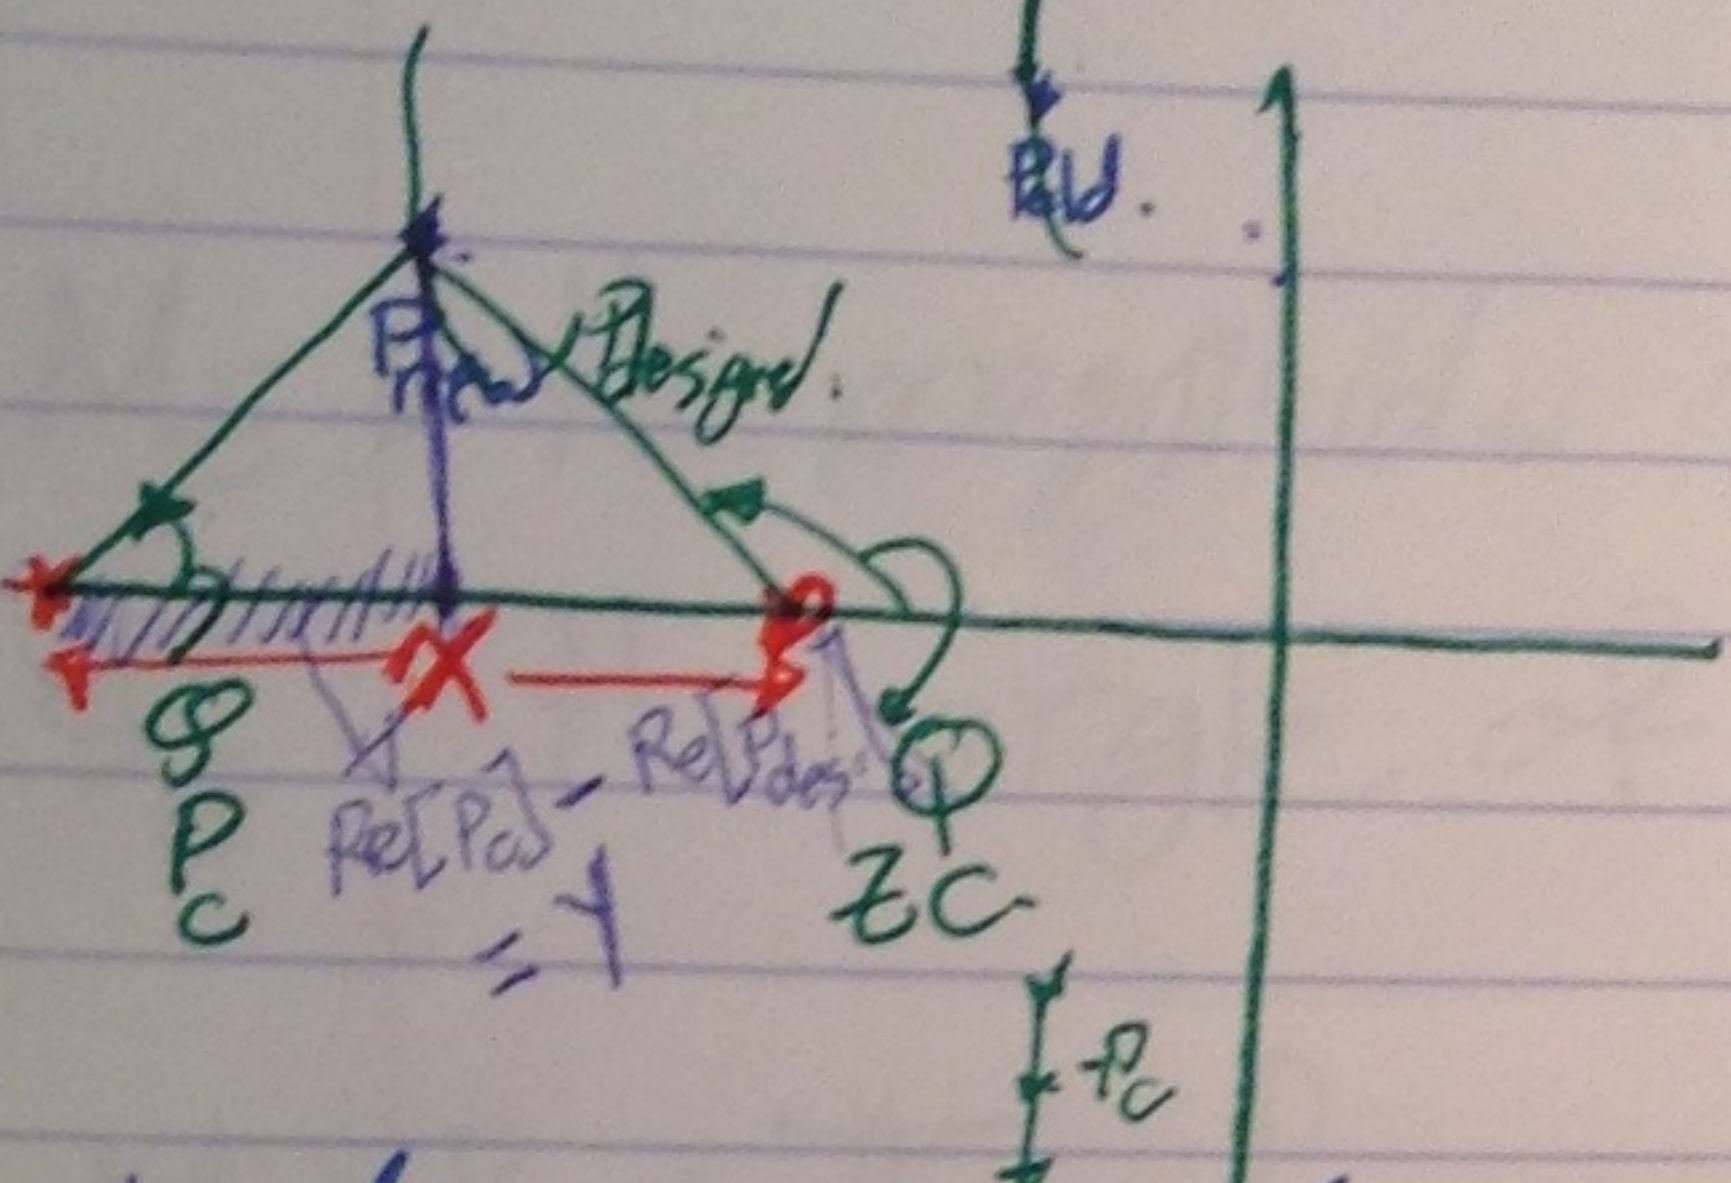 Pold.
Pnew / Desigred.
X
φ
Pc
Re[Pc] - Re[Pdes.]
= Y
Φ
ZC
-Pc